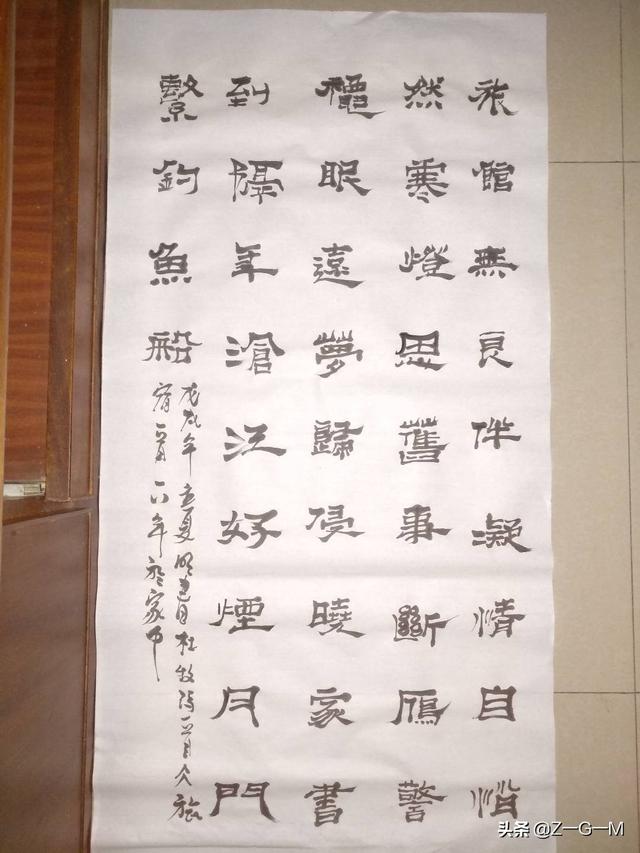 旅館無良伴凝情自悄
然寒燈思舊事斷鴈警
穐眠遠夢歸侵曉家書
到隔年滄江好煙月門
繫釣魚船
戊戌年立夏 杜牧詩 旅
宿 年 家中
头条 @Z-G-M